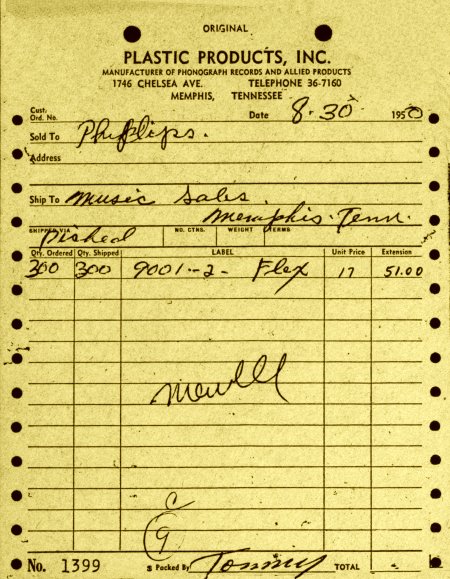 ORIGINAL
PLASTIC PRODUCTS, INC.
MANUFACTURER OF PHONOGRAPH RECORDS AND ALLIED PRODUCTS
1746 CHELSEA AVE. TELEPHONE 36-7160
MEMPHIS, TENNESSEE
Cust. Ord. No. Date 8-30 1950
Sold To Phillips.
Address
Ship To Music Sales.
Memphis. Tenn.
SHIPPED VIA NO. CTNS. WEIGHT TERMS
Qty. Ordered Qty. Shipped LABEL Unit Price Extension
300 300 9001--2- Flex 17 51.00
9
No. 1399 Packed By Tommy TOTAL